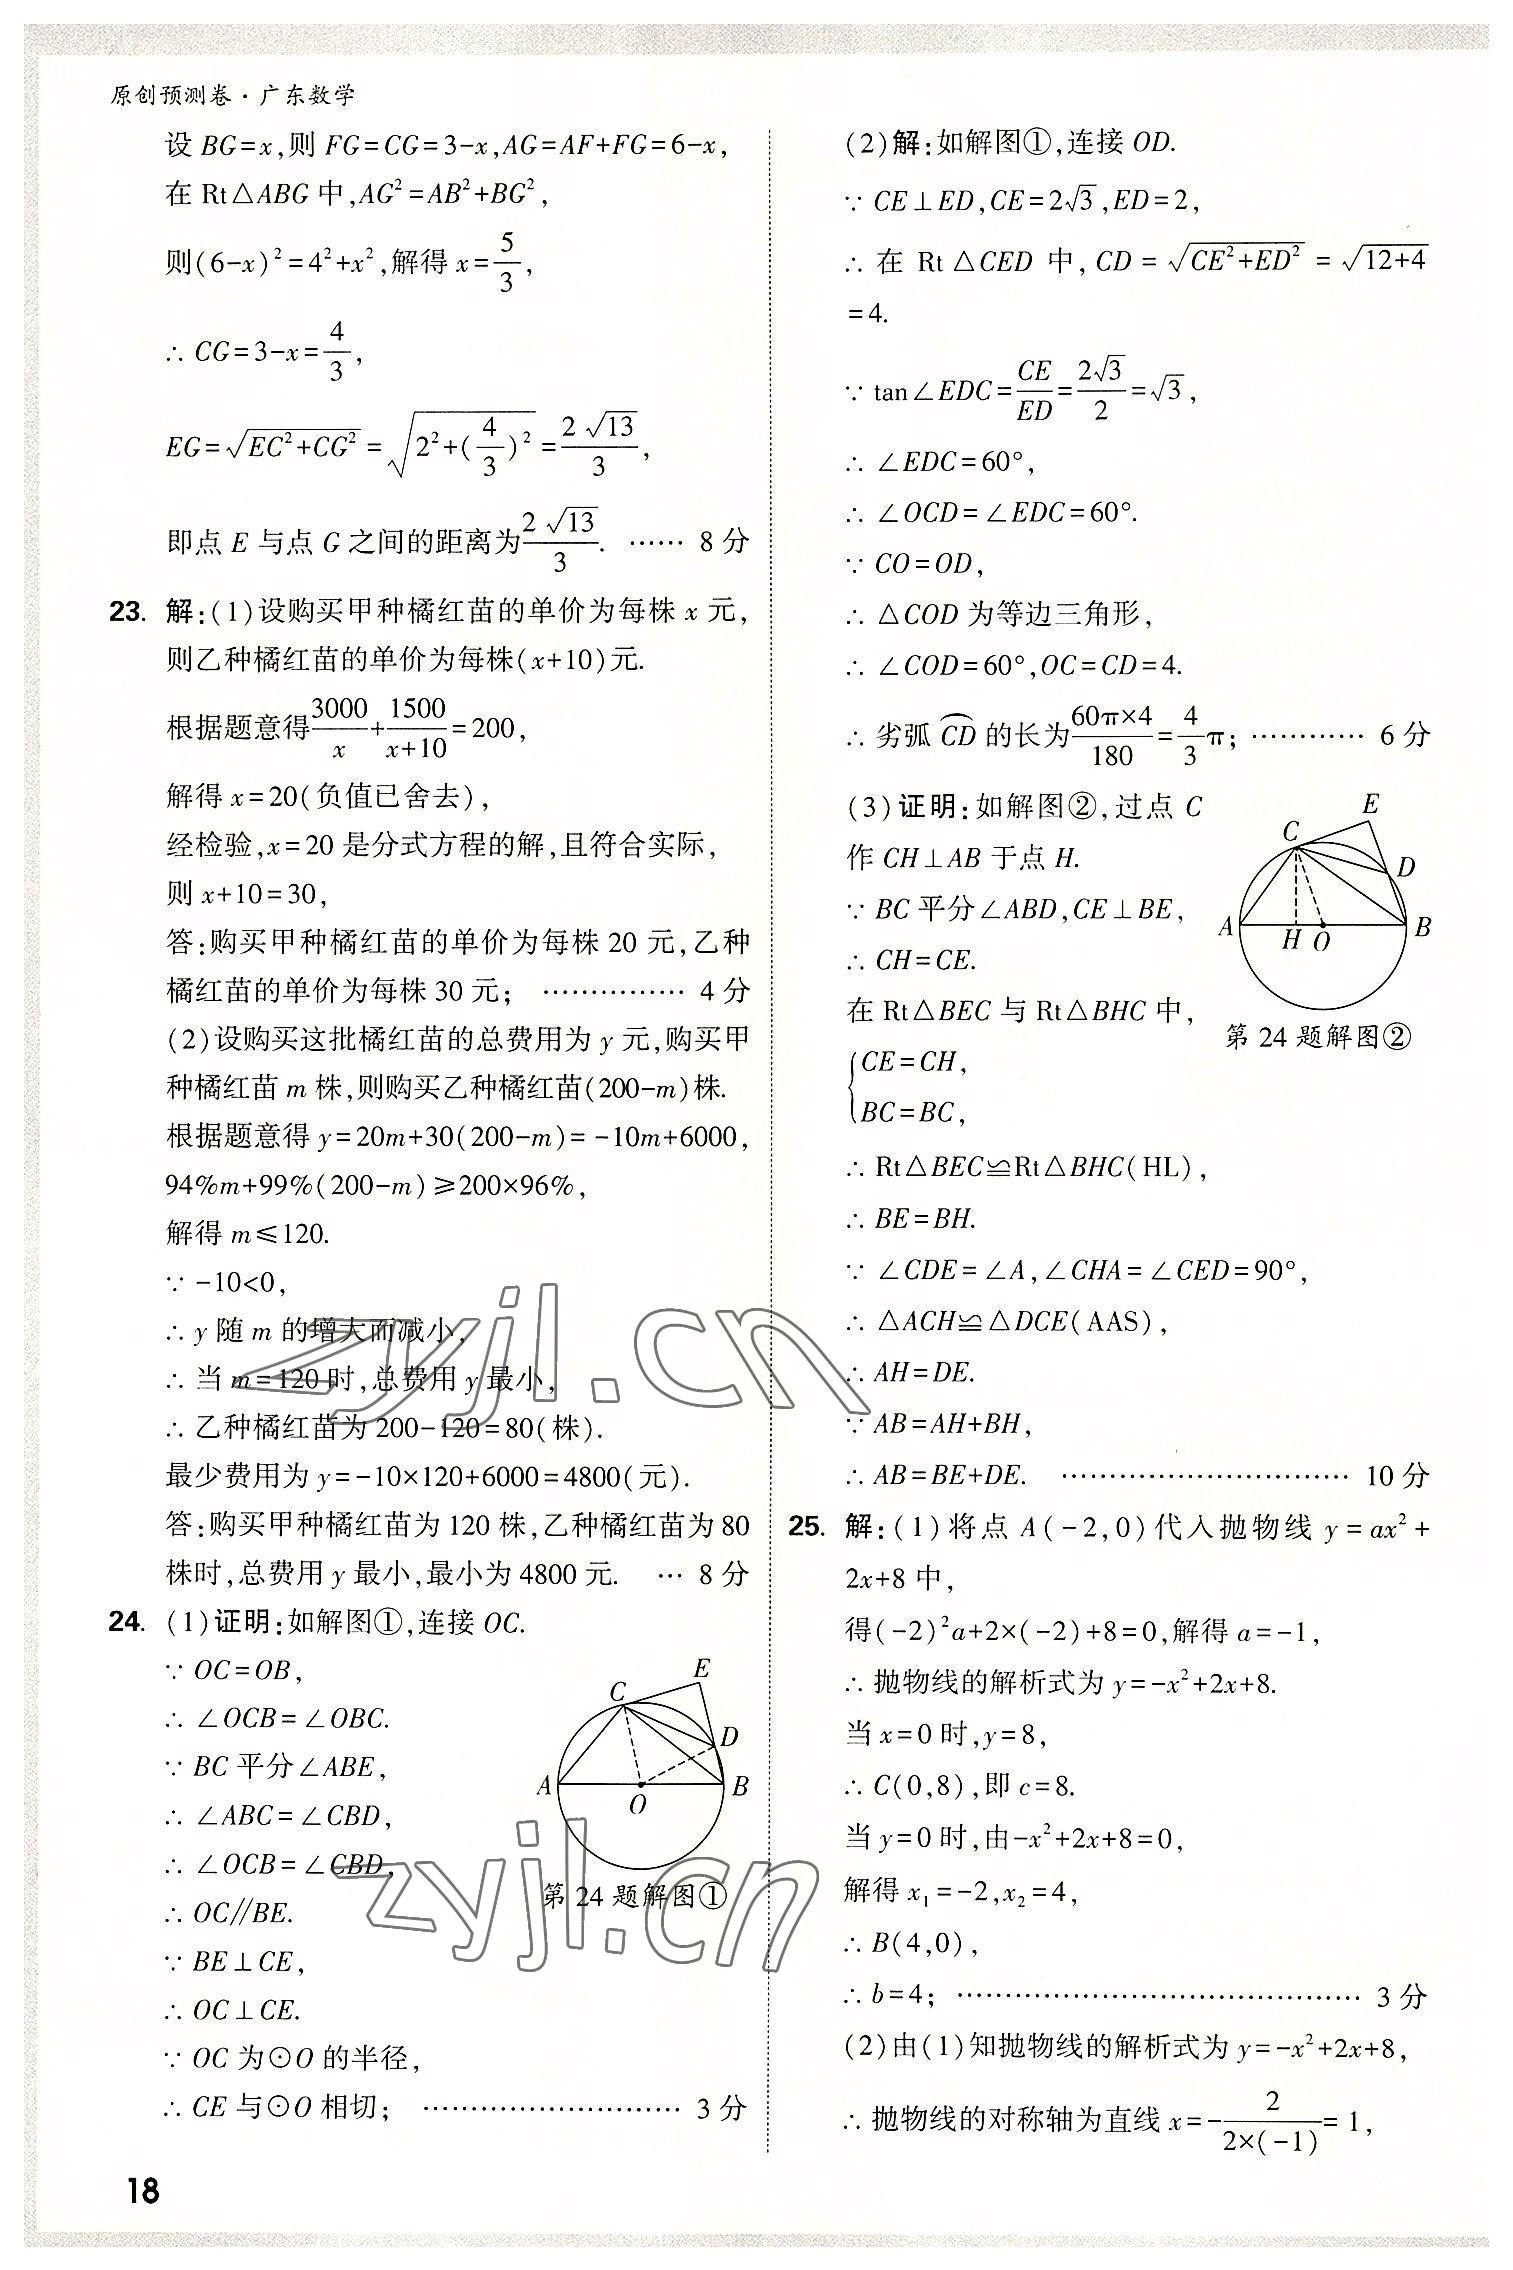 原创预测卷·广东数学
设 BG=x,则 FG=CG=3-x,AG=AF+FG=6-x,
在 Rt△ABG 中,AG²=AB²+BG²,
则(6-x)²=4²+x²,解得 x=5/3,
∴ CG=3-x=4/3,
EG=√(EC²+CG²)=√(2²+(4/3)²)=2√13/3,
即点 E 与点 G 之间的距离为2√13/3. …… 8 分
23. 解:(1)设购买甲种橘红苗的单价为每株 x 元,
则乙种橘红苗的单价为每株(x+10)元.
根据题意得3000/x+1500/(x+10)=200,
解得 x=20(负值已舍去),
经检验,x=20 是分式方程的解,且符合实际,
则 x+10=30,
答:购买甲种橘红苗的单价为每株 20 元,乙种
橘红苗的单价为每株 30 元; …………… 4 分
(2)设购买这批橘红苗的总费用为 y 元,购买甲
种橘红苗 m 株,则购买乙种橘红苗(200-m)株.
根据题意得 y=20m+30(200-m)=-10m+6000,
94%m+99%(200-m)≥200×96%,
解得 m≤120.
∵ -10<0,
∴ y 随 m 的增大而减小,
∴ 当 m=120 时,总费用 y 最小,
∴ 乙种橘红苗为 200-120=80(株).
最少费用为 y=-10×120+6000=4800(元).
答:购买甲种橘红苗为 120 株,乙种橘红苗为 80
株时,总费用 y 最小,最小为 4800 元. … 8 分
24. (1)证明:如解图①,连接 OC.
∵ OC=OB,
∴ ∠OCB=∠OBC.
∵ BC 平分∠ABE,
∴ ∠ABC=∠CBD,
∴ ∠OCB=∠CBD,
∴ OC∥BE.
∵ BE⊥CE,
∴ OC⊥CE.
∵ OC 为⊙O 的半径,
∴ CE 与⊙O 相切; …………………… 3 分
E
C
D
A
O
B
第 24 题解图①
(2)解:如解图①,连接 OD.
∵ CE⊥ED,CE=2√3,ED=2,
∴ 在 Rt△CED 中,CD=√(CE²+ED²)=√(12+4)
=4.
∵ tan∠EDC=CE/ED=2√3/2=√3,
∴ ∠EDC=60°,
∴ ∠OCD=∠EDC=60°.
∵ CO=OD,
∴ △COD 为等边三角形,
∴ ∠COD=60°,OC=CD=4.
∴ 劣弧 CD⌒ 的长为60π×4/180=4/3π; ………… 6 分
(3)证明:如解图②,过点 C
作 CH⊥AB 于点 H.
∵ BC 平分∠ABD,CE⊥BE,
∴ CH=CE.
在 Rt△BEC 与 Rt△BHC 中,
{CE=CH,
BC=BC,
∴ Rt△BEC≌Rt△BHC(HL),
∴ BE=BH.
∵ ∠CDE=∠A,∠CHA=∠CED=90°,
∴ △ACH≌△DCE(AAS),
∴ AH=DE.
∵ AB=AH+BH,
∴ AB=BE+DE. ………………………… 10 分
E
C
D
A
H O
B
第 24 题解图②
25. 解:(1)将点 A(-2,0)代入抛物线 y=ax²+
2x+8 中,
得(-2)²a+2×(-2)+8=0,解得 a=-1,
∴ 抛物线的解析式为 y=-x²+2x+8.
当 x=0 时,y=8,
∴ C(0,8),即 c=8.
当 y=0 时,由-x²+2x+8=0,
解得 x₁=-2,x₂=4,
∴ B(4,0),
∴ b=4; …………………………………… 3 分
(2)由(1)知抛物线的解析式为 y=-x²+2x+8,
∴ 抛物线的对称轴为直线 x=-2/(2×(-1))=1,
18
zyjl.cn
zyjl.cn